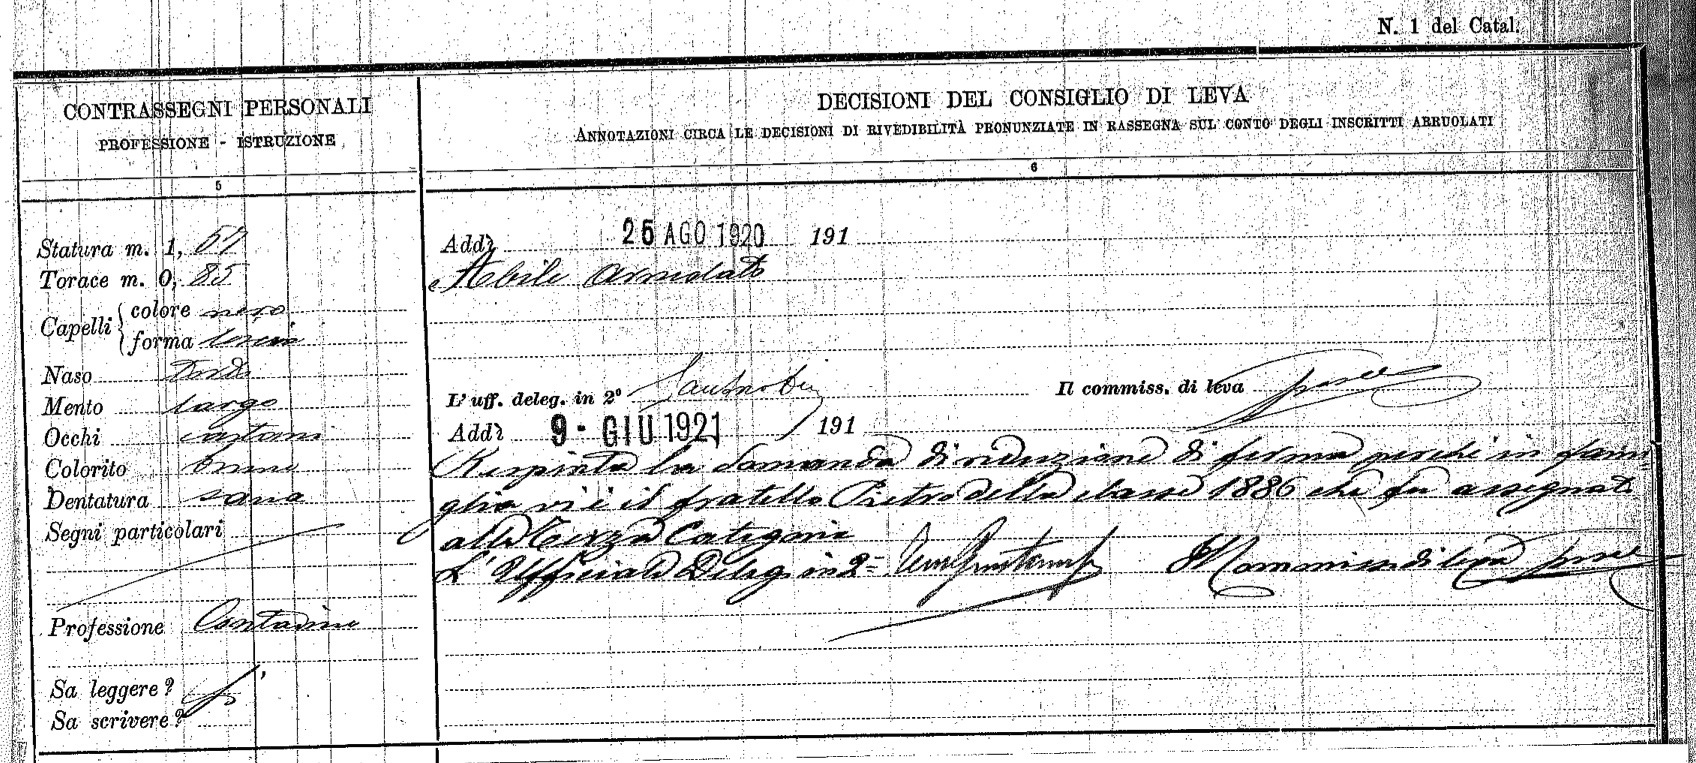 N. 1 del Catal.
CONTRASSEGNI PERSONALI
PROFESSIONE - ISTRUZIONE
5
Statura m. 1,
Torace m. 0, 85
Capelli colore nero
forma
Naso
Mento largo
Occhi castani
Colorito bruno
Dentatura sana
Segni particolari
Professione Contadino
Sa leggere? si
Sa scrivere?
DECISIONI DEL CONSIGLIO DI LEVA
ANNOTAZIONI CIRCA LE DECISIONI DI RIVEDIBILITÀ PRONUNZIATE IN RASSEGNA SUL CONTO DEGLI INSCRITTI ARRUOLATI
6
Addì 26 AGO 1920 191
Abile arruolato
L'uff. deleg. in 2º Il commiss. di leva
Addì 9 - GIU 1921 191
Respinta la domanda di riduzione di ferma perchè in fami-
glia vi è il fratello Pietro della classe 1886 che fu assegnato
alla Terza Categoria
L'Ufficiale Deleg. in 2º Il Commissario di leva